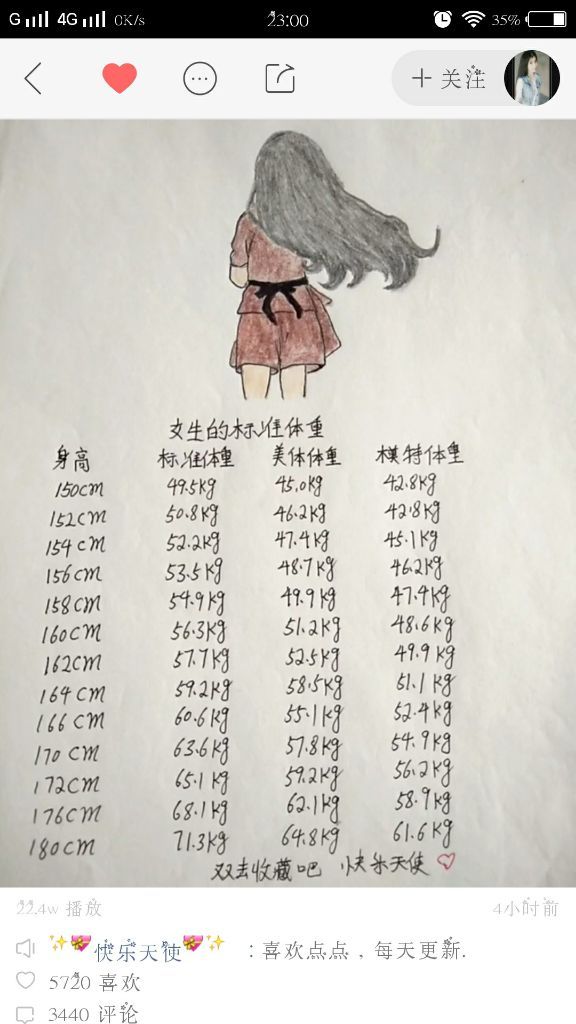 G 4G 0K/s 23:00 35%
+ 关注
女生的标准体重
身高 标准体重 美体体重 模特体重
150cm 49.5kg 45.0kg 42.8kg
152cm 50.8kg 46.2kg 42.8kg
154cm 52.2kg 47.4kg 45.1kg
156cm 53.5kg 48.7kg 46.2kg
158cm 54.9kg 49.9kg 47.4kg
160cm 56.3kg 51.2kg 48.6kg
162cm 57.7kg 52.5kg 49.9kg
164cm 59.2kg 58.5kg 51.1kg
166cm 60.6kg 55.1kg 52.4kg
170cm 63.6kg 57.8kg 54.9kg
172cm 65.1kg 59.2kg 56.2kg
176cm 68.1kg 62.1kg 58.9kg
180cm 71.3kg 64.8kg 61.6kg
双击收藏吧 快乐天使♡
22.4w 播放 4小时前
✨💝快乐天使💝✨ :喜欢点点，每天更新.
5720 喜欢
3440 评论